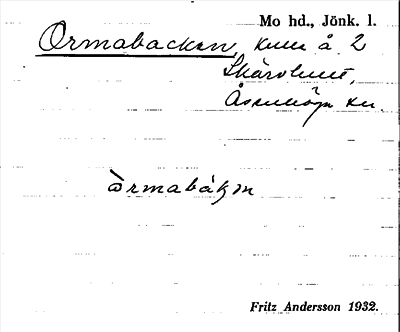 Mo hd., Jönk. l.
Ormabacken, kulle å 2
Skärvhult,
Åsenhöga sn.
òrmabákɳ
Fritz Andersson 1932.